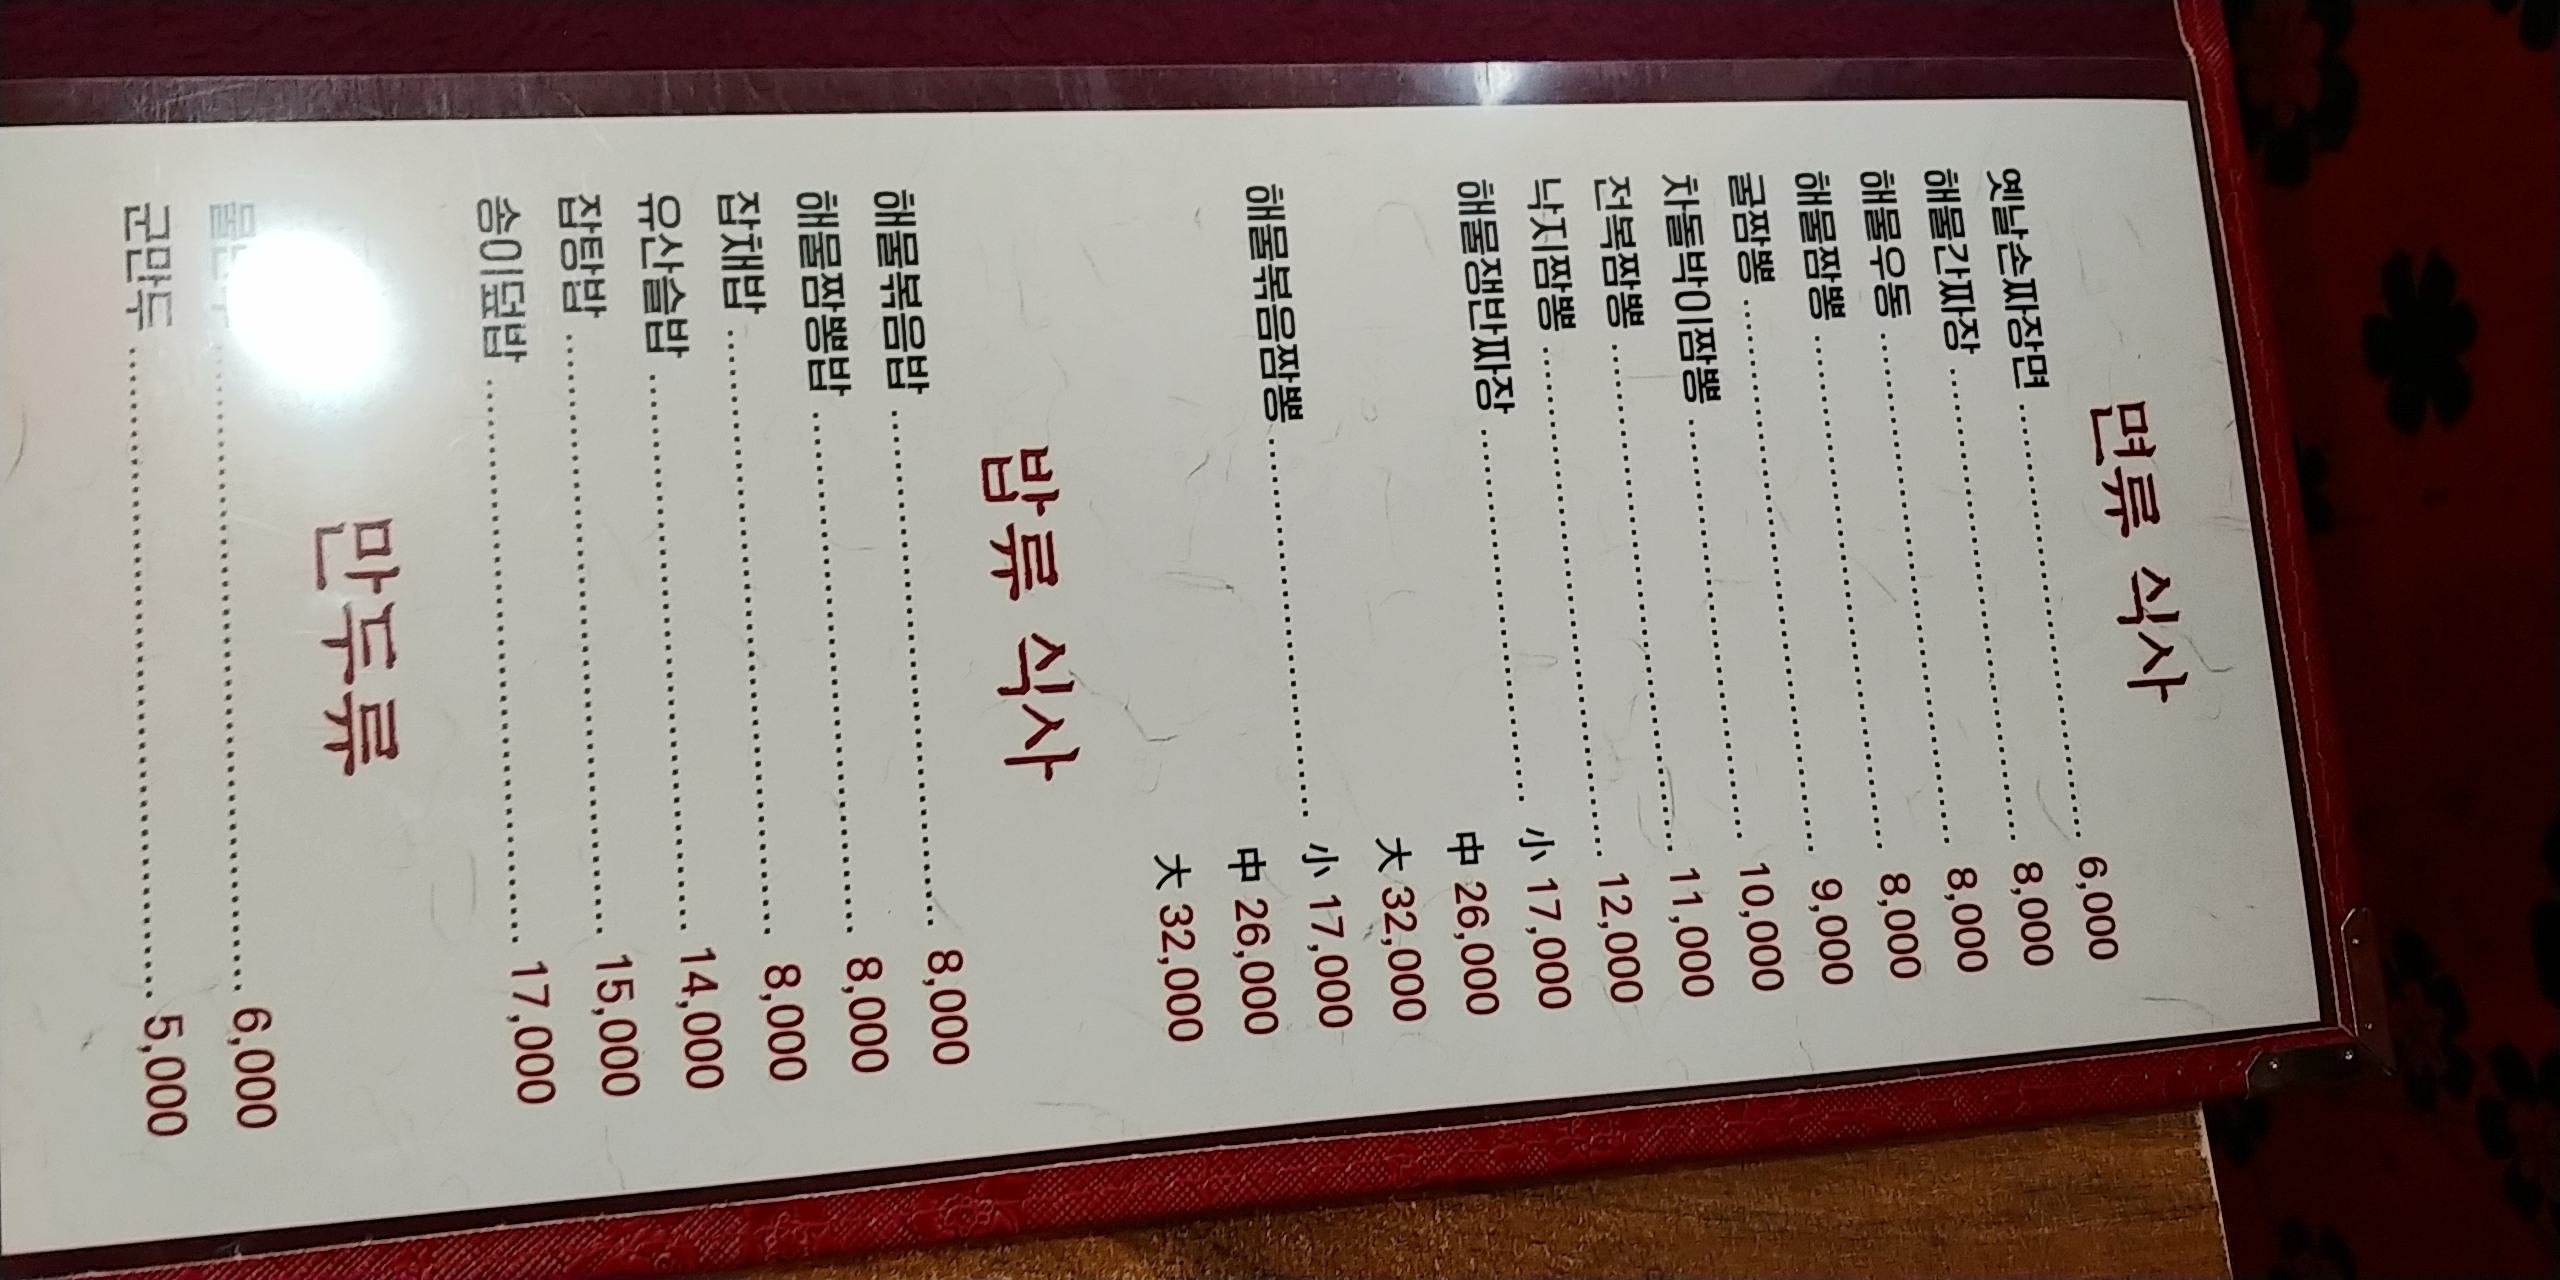 면류 식사
옛날손짜장면 6,000
해물간짜장 8,000
해물우동 8,000
해물짬뽕 8,000
굴짬뽕 9,000
차돌박이짬뽕 10,000
전복짬뽕 11,000
낙지짬뽕 12,000
해물쟁반짜장 小 17,000
中 26,000
大 32,000
해물볶음짬뽕 小 17,000
中 26,000
大 32,000
밥류 식사
해물볶음밥 8,000
해물짬뽕밥 8,000
잡채밥 8,000
유산슬밥 14,000
잡탕밥 15,000
송이덮밥 17,000
만두류
6,000
군만두 5,000